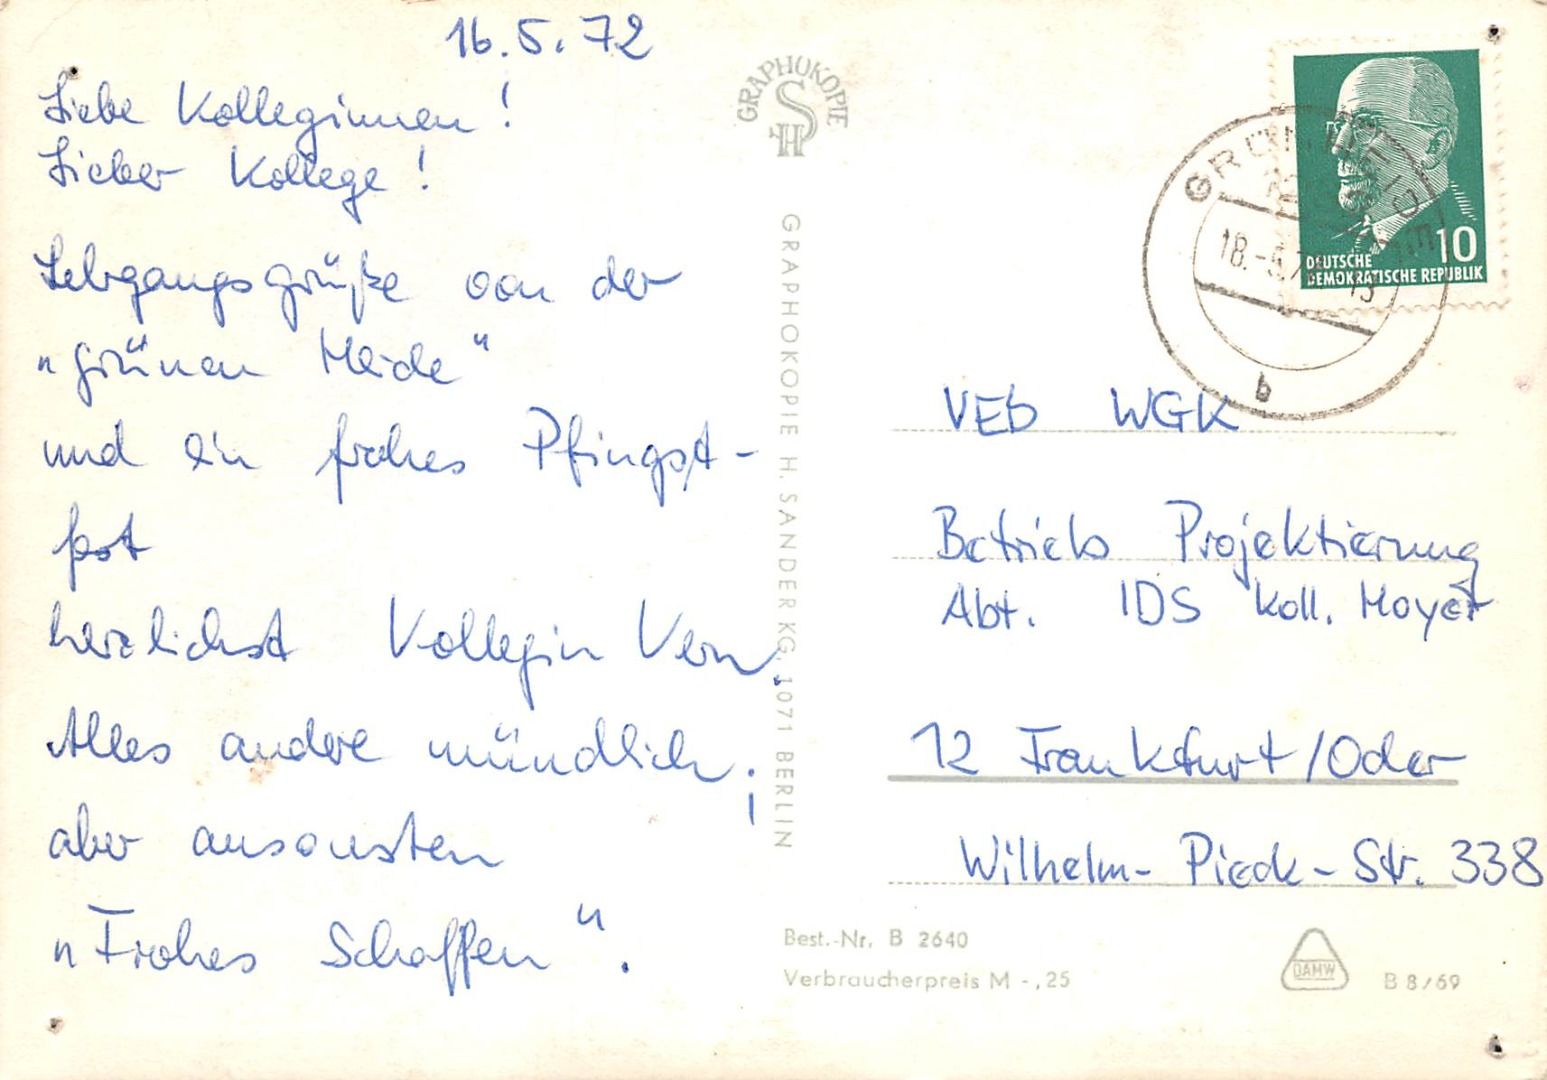 16.5.72
Liebe Kolleginnen!
Lieber Kollege!
Lehrgangsgrüße von der
"grünen Heide"
und ein frohes Pfingst-
fest
herzlichst Kollegin Vern.
Alles andere mündlich;
aber ansonsten
"Frohes Schaffen".
GRAPHOKOPIE
HS
GRAPHOKOPIE H. SANDER KG, 1071 BERLIN
DEUTSCHE
DEMOKRATISCHE REPUBLIK
10
18.-5.72
b
VEB WGK
Betrieb Projektierung
Abt. IDS Koll. Moyet
12 Frankfurt/Oder
Wilhelm-Pieck-Str. 338
Best.-Nr. B 2640
Verbraucherpreis M -,25
DAMW
B 8/69